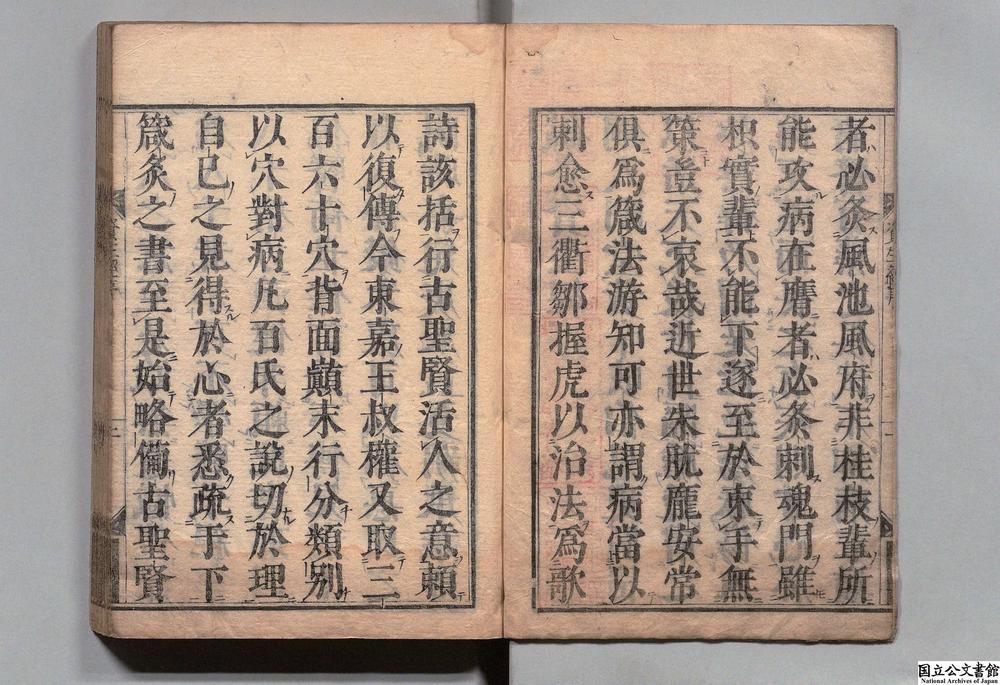 者必灸風池風府非桂枝輩所
能攻病在膺者必灸刺魂門雖
枳實輩不能下逐至於束手無
策豈不哀哉近世朱肱龐安常
俱爲箴法游知可亦謂病當以
刺愈三衢鄒握虎以治法爲歌
詩該括行古聖賢活人之意頼
以復傳今東嘉王叔權又取三
百六十穴背面巓末行分類別
以穴對病凡百氏之說切於理
自己之見得於心者悉疏于下
箴灸之書至是始略備古聖賢
国立公文書館
National Archives of Japan